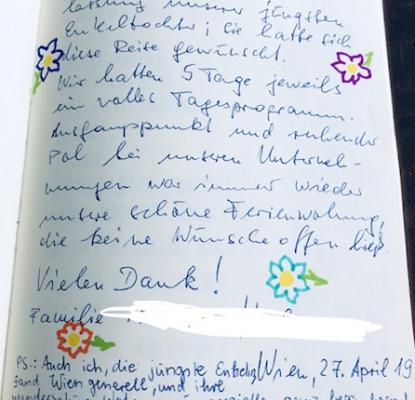 lassung unserer jüngsten
Enkeltochter; Sie hatte sich
diese Reise gewünscht.
Wir hatten 5 Tage jeweils
ein volles Tagesprogramm.
Ausgangspunkt und ruhender
Pol bei unseren Unterneh-
mungen war immer wieder
unsere schöne Ferienwohnung,
die keine Wünsche offen ließ.
Vielen Dank!
Familie
PS.: Auch ich, die jüngste Wien, 27. April 19
fand Wien generell, und ihre